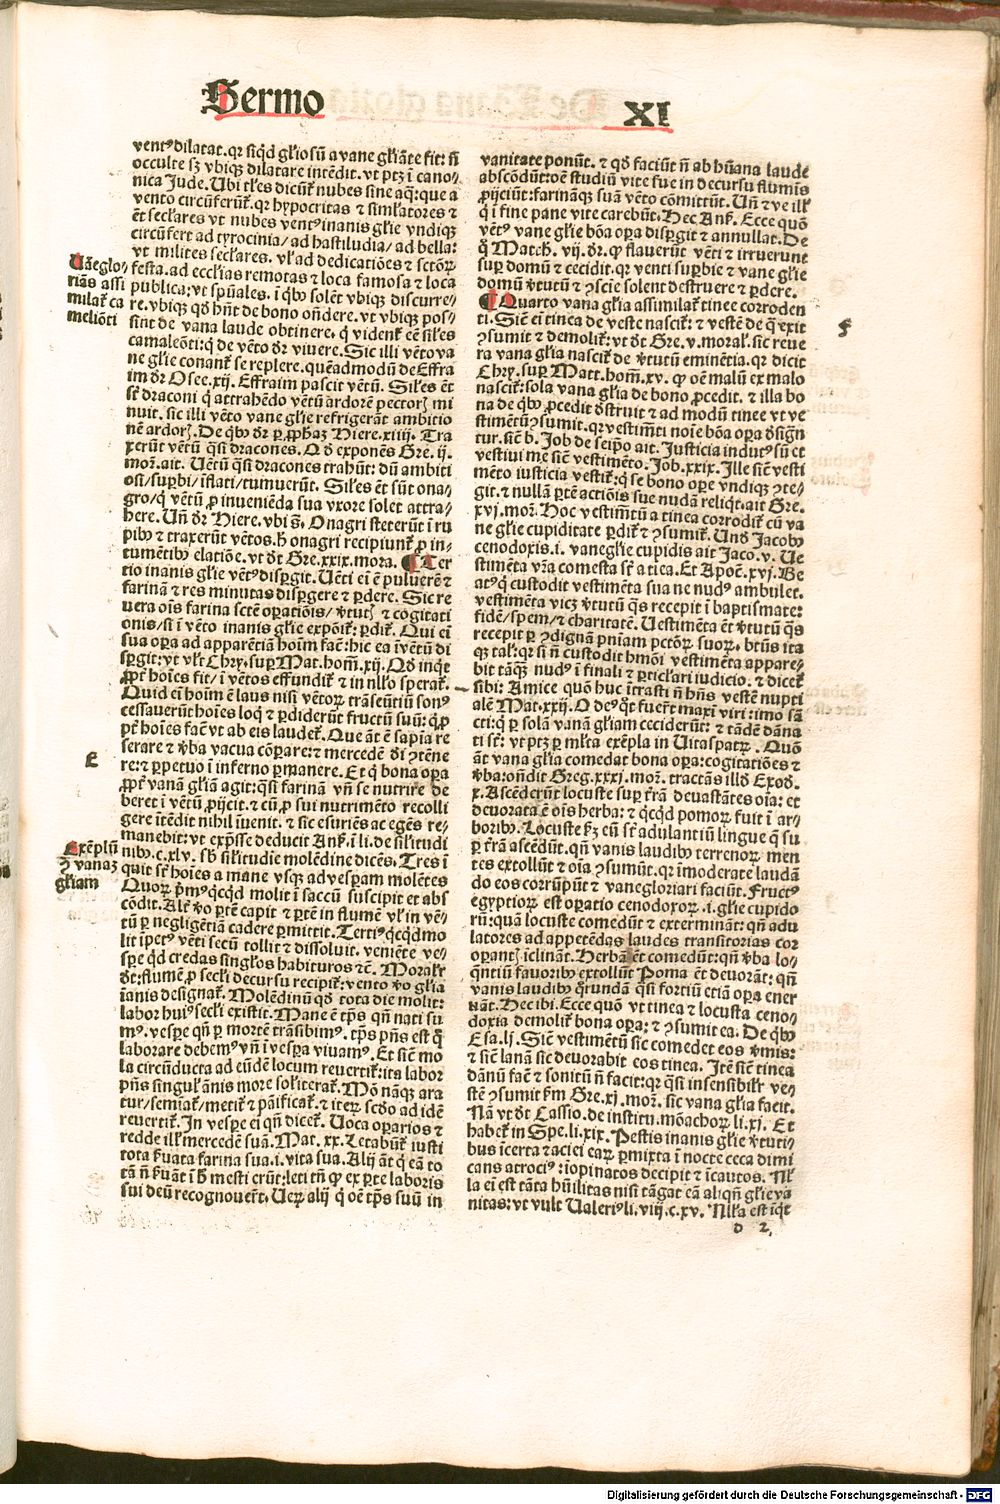 Sermo
XI
ventꝰ dilatat. qr siqd gl'iosū a vane gl'iāte fit: ñ
occulte sꝫ vbiqꝫ dilatare intēdit. vt ptꝫ ī cano-
nica Jude. Ubi tl'es dicūt̄ nubes sine aq̄: que a
vento circūferūt̄. qr hypocritas ⁊ simlatores ⁊
ēt secl'ares vt nubes ventꝰ inanis gl'ie vndiqꝫ
circūfert ad tyrocinia/ ad hastiludia/ ad bella:
vt milites secl'ares. vl' ad dedicatiōes ⁊ sctōꝝ
festa. ad eccl'ias remotas ⁊ loca famosa ⁊ loca
publica: vt spūales. ī qbꝰ solēt vbiqꝫ discurre-
re. vbiqꝫ qd hn̄t de bono on̄dere. vt vbiqꝫ pos-
sint de vana laude obtinere. q̇ vident̄ cē sil'es
camaleōti: q̇ de vēto dr̄ vivere. Sic illi vēto va
ne gl'ie conant̄ se replere. quēadmodū de Effra
im dr̄ Osee. xij. Effraim pascit vētū. Sil'es ēt
st̄ draconi q̇ attrahēdo vētū ardorē pectorꝭ mi
nuit. sic illi vēto vane gl'ie refrigerāt ambitio
nē ardorꝭ. De qbꝰ dr̄ ꝑ ꝓphaꝫ Hiere. xiiij. Tra
xerūt vētū qsi dracones. Qd exponēs Gre. ij.
mor. ait. Uētū qsi dracones trahūt: dū ambiti
osi/ suꝑbi/ īflati/ tumuerūt. Sil'es ēt sūt ona-
gro/ q̇ vētū ꝓ invenièda sua vxore solet attra-
here. Uñ dr̄ Hiere. vbi s̄. Onagri steterūt ī ru
pibꝰ ⁊ traxerūt vētos. h̄ onagri recipiunt̄ ꝓ in-
tumētibꝰ elatiōe. vt dt̄ Gre. xxix. mora. ¶ Ter
tio inanis gl'ie vētꝰ disꝑgit. Uēti ei ē puluerē ⁊
farinā ⁊ res minutas disꝑgere ⁊ ꝑdere. Sic re
vera oīs farina sctē oꝑatiōnis/ v̄tutꝭ ⁊ cogitati
onis/ si ī vēto inanis gl'ie expōit̄: ꝑdit̄. Qui ei
sua oꝑa ad apparētiā hoīm fac̄t: hic ea īvētū di
sꝑgit: vt vl't Chry. suꝑ Mat. hom̄. xij. Qd inqt
ꝓpt̄ hoīes fit/ ī vētos effundit̄ ⁊ in nl'lo sperat̄.
Quid ei hoīm ē laus nisi vētoꝝ trāseūtiū sonꝰ
cessauerūt hoīes loq̄ ⁊ ꝑdiderūt fructū suū: q̄ ꝓ
pt̄ hoīes fac̄t vt ab eis laudet̄. Que āt ē sapīa re
serare ⁊ v̄ba vacua cōꝑare: ⁊ mercedē dī ꝯtēne
re: ⁊ ꝑpetuo ī inferno ꝑmanere. Et q̇ bona oꝑa
ꝓpt̄ vanā gl'iā agit: qsi farinā vñ se nutrire de
beret ī vētū ꝓijcit. ⁊ cū ꝓ sui nutrimēto recolli
gere ītēdit nihil īuenit. ⁊ sic esuriēs ac egēs re-
manebit: vt exp̄sse deducit Anſ. ī li. de sil'itudi
nibꝰ. c. xlv. sb sil'itudie molēdine dicēs. Tres ī
quit st̄ hoīes a mane vsqꝫ ad vesꝑam molētes
Quoꝝ p̄mꝰ qcqd molit ī saccū suscipit et abs
cōdit. Alt̄ v̄o ꝑtē capit ⁊ ꝑtē in flumē vl' in vē-
tū ꝑ negligētiā cadere ꝑmittit. Tertiꝰ qcqd mo
lit īpetꝰ vēti secū tollit ⁊ dissoluit. veniēte ve-
sꝑe qd credas singl'os habituros ⁊c̄. Moralr̄
dt̄: flumē ꝓ secl'i decursu recipit̄: vento v̄o gl'ia
īanis designat̄. Molēdinū qd tota die molit:
labor huiꝰ secl'i existit. Mane ē tp̄s qñ nati su
mꝰ. vespe qñ ꝑ mortē trāsibimꝰ. tp̄s pn̄s est q̄
laborare debemꝰ vñ ī vesꝑa viuamꝰ. Et siē mo
la circūducta ad eūdē locum reuertit̄: ita labor
pn̄s singul' ānis more sol'iterat̄. Mō nāqꝫ ara
tur/ semiat̄/ metit̄ ⁊ pāificat̄. ⁊ iteꝝ scdo ad idē
reuertit̄. In vespe ei qñ dicet̄. Uoca oꝑarios ⁊
redde ill' mercedē suā. Mat. xx. Letabūt̄ iusti
tota ẜuata farina sua. i. vita sua. Alij āt q̇ eā to
tā ñ ẜuāt ī h̄ mesti erūt: leti tn̄ ꝙ ex ꝑte laboris
sui deū recognouet̄. Ueꝝ alij q̇ oē tp̄s suū in
Uāe glo-
riās assi
milat̄ ca
meliōti
E
Exēplū
ꝯ vanaꝫ
gl'iam
vanitate ponūt. ⁊ qd faciūt ñ ab hūana laude
abscōdūt: oē studiū vite sue in decursu flumīs
ꝓijciūt: farināqꝫ suā vēto cōmittūt. Uñ ⁊ ve ill'
q̇ ī fine pane vite carebūt. Hec Anſ. Ecce quō
vētꝰ vane gl'ie bōa oꝑa disꝑgit ⁊ annullat. De
q̄ Matth. vij. dr̄. ꝙ flauerūt vēti ⁊ irruerunt
suꝑ domū ⁊ cecidit. qr venti suꝑbie ⁊ vane gl'ie
domū v̄tutū ⁊ ꝯscie solent destruere ⁊ ꝑdere.
¶ Quarto vana gl'ia assimilat̄ tinee corroden
ti. Siē ei tinea de veste nascit̄: ⁊ vestē de q̄ exit
ꝯsumit ⁊ demolit̄: vt dt̄ Gre. v. moral'. sic reue
ra vana gl'ia nascit̄ de v̄tutū eminētia. qr dicit
Chry. suꝑ Matt. hom̄. xv. ꝙ oē malū ex malo
nascit̄: sola vana gl'ia de bono ꝓcedit. ⁊ illa bo
na de qbꝰ ꝓcedit dstruit ⁊ ad modū tinee vt ve
stimētū ꝯsumit. qr vestimn̄ti noīe bōa oꝑa dsign̄
tur. siē b. Job de seip̄o ait. Justicia indutꝰ sū et
vestiui me siē vestimēto. Job. xxix. Ille siē vesti
mēto iusticia vestit̄: q̇ se bono oꝑe vndiqꝫ ꝯte-
git. ⁊ nullā ꝑtē actiōis sue nudā reliq̄t. ait Gre.
xvj. mor. Hoc vestimn̄tū a tinea corrodit̄ cū va
ne gl'ie cupiditate ꝑdit̄ ⁊ ꝯsumit̄. Uñ Jacobꝰ
cenodoxis. i. vanegl'ie cupidis ait Jaco. v. Ue
stimēta vr̄a comesta st̄ a tiea. Et Apoc̄. xvj. Be
atꝰ q̇ custodit vestimēta sua ne nudꝰ ambulet.
vestimēta vicꝫ v̄tutū q̄s recepit ī baptismate:
fidē/ spem/ ⁊ charitatē. Uestimēta ēt v̄tutū q̄s
recepit ꝑ ꝯdignā pniam pctōꝝ suoꝝ. btūs ita
qꝫ tal': qr si ñ custodit hmōi vestimēta appare-
bit tāqꝫ nudꝰ ī finali ⁊ ꝑticl'ari iudicio. ⁊ dicet̄
sibi: Amice quō huc ītrasti ñ hn̄s vestē nupti
alē Mat. xxij. O deꝰ qt̄ fuer̄t maxi viri: imo sā
cti: q̇ ꝑ solā vanā gl'iam ceciderūt: ⁊ tādē dāna
ti st̄: vt ptꝫ ꝑ ml'ta exēpla in Uitaspatꝝ. Quō
āt vana gl'ia comedat bona oꝑa: cogitatiōes ⁊
v̄ba: on̄dit Greg. xxxj. mor. tractās illd Exod.
x. Ascēderūt locuste suꝑ t̄rā deuastātes oīa: et
deuorata ē oīs herba: ⁊ qcqd pomoꝝ fuit ī ar-
boribꝰ. Locuste ẜꝫ cū st̄ adulantiū lingue q̄ su
ꝑ t̄rā ascēdūt. qñ vanis laudibꝰ terrenoꝝ men
tes extollūt ⁊ oīa ꝯsumūt. qr īmoderate laudā
do eos corrūpūt ⁊ vanegloriari faciūt. Fructꝰ
egyptioꝝ est oꝑatio cenodoxoꝝ. i. gl'ie cupido
rū: quā locuste comedūt ⁊ exterminat: qñ adu
latores ad appetēdas laudes transitorias cor
oꝑantꝭ iclinant. Herbā ēt comedūt: qñ v̄ba lo-
quētiū fauoribꝰ extollūt Poma ēt deuorāt: qñ
vanis laudibꝰ q̄rundā qsi fortiū etiā oꝑa ener
uāt. Hec ibi. Ecce quō vt tinea ⁊ locusta ceno-
doxia demolit̄ bona oꝑa: ⁊ ꝯsumit ea. De qbꝰ
Esa. lj. Siē vestimētū sic comedet eos v̄mis:
⁊ siē lanā sic deuorabit eos tinea. Itē siē tinea
dānū fac̄t ⁊ sonitū ñ facit: qr qsi insensibilr̄ ve-
stē ꝯsumit ẜm Gre. xj. mor. sic vana gl'ia facit.
Nā vt dt̄ Cassio. de institu. mōachoꝝ li. xj. Et
habet̄ in Spe. li. xix. Pestis inanis gl'ie v̄tuti-
bus īcerta ⁊ aciei caꝝ ꝑmixta ī nocte ceca dimi
cans atrociꝰ: iopinatos decipit ⁊ īcautos. Nl'
la ei est tāta hūilitas nisi tāgat eā aliqñ gl'ie va
nitas: vt vult Ualeriꝰ li. viij. c. xv. Nl'la est īqt
F
d 2,
Digitalisierung gefördert durch die Deutsche Forschungsgemeinschaft - DFG